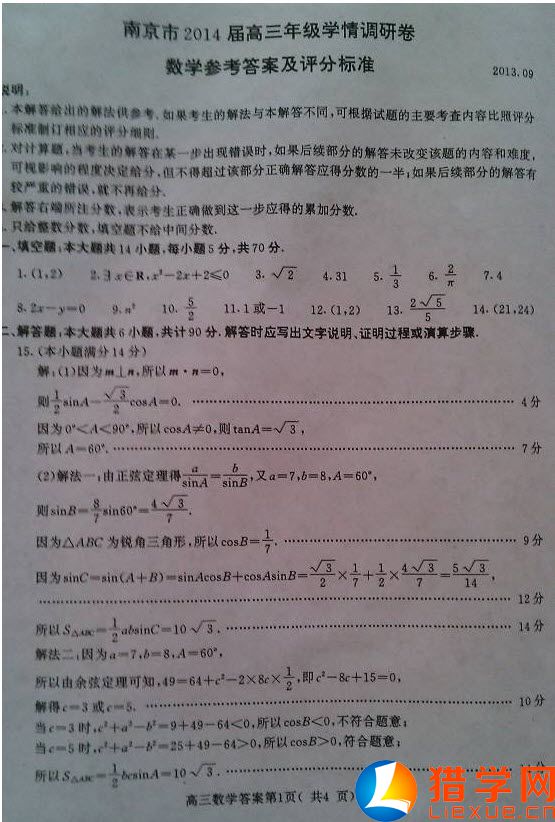 南京市2014届高三年级学情调研卷
数学参考答案及评分标准
2013.09
说明:
.本解答给出的解法供参考.如果考生的解法与本解答不同,可根据试题的主要考查内容比照评分
标准制订相应的评分细则.
.对计算题,当考生的解答在某一步出现错误时,如果后续部分的解答未改变该题的内容和难度,
可视影响的程度决定给分,但不得超过该部分正确解答应得分数的一半;如果后续部分的解答有
较严重的错误,就不再给分.
.解答右端所注分数,表示考生正确做到这一步应得的累加分数.
.只给整数分数,填空题不给中间分数.
一、填空题:本大题共14小题,每小题5分,共70分.
1.(1,2) 2.∃x∈R,x²-2x+2≤0 3.√2 4.31 5.1/3 6.2/π 7.4
8.2x-y=0 9.n² 10.5/2 11.1或-1 12.(1,2) 13.2√5/5 14.(21,24)
二、解答题:本大题共6小题,共计90分.解答时应写出文字说明、证明过程或演算步骤.
15.(本小题满分14分)
解:(1)因为m⊥n,所以m·n=0,
则1/2sinA-√3/2cosA=0. ……………………………… 4分
因为0°<A<90°,所以cosA≠0,则tanA=√3,
所以A=60°. ……………………………… 7分
(2)解法一:由正弦定理得a/sinA=b/sinB,又a=7,b=8,A=60°,
则sinB=8/7sin60°=4√3/7.
因为△ABC为锐角三角形,所以cosB=1/7. ……………………………… 9分
因为sinC=sin(A+B)=sinAcosB+cosAsinB=√3/2×1/7+1/2×4√3/7=5√3/14,
……………………………… 12分
所以S△ABC=1/2absinC=10√3. ……………………………… 14分
解法二:因为a=7,b=8,A=60°,
所以由余弦定理可知,49=64+c²-2×8c×1/2,即c²-8c+15=0,
解得c=3或c=5. ……………………………… 10分
当c=3时,c²+a²-b²=9+49-64<0,所以cosB<0,不符合题意;
当c=5时,c²+a²-b²=25+49-64>0,所以cosB>0,符合题意;
所以S△ABC=1/2bcsinA=10√3. ………………………………
高三数学答案第1页(共4页)
猎学网
LIEXUE.CN